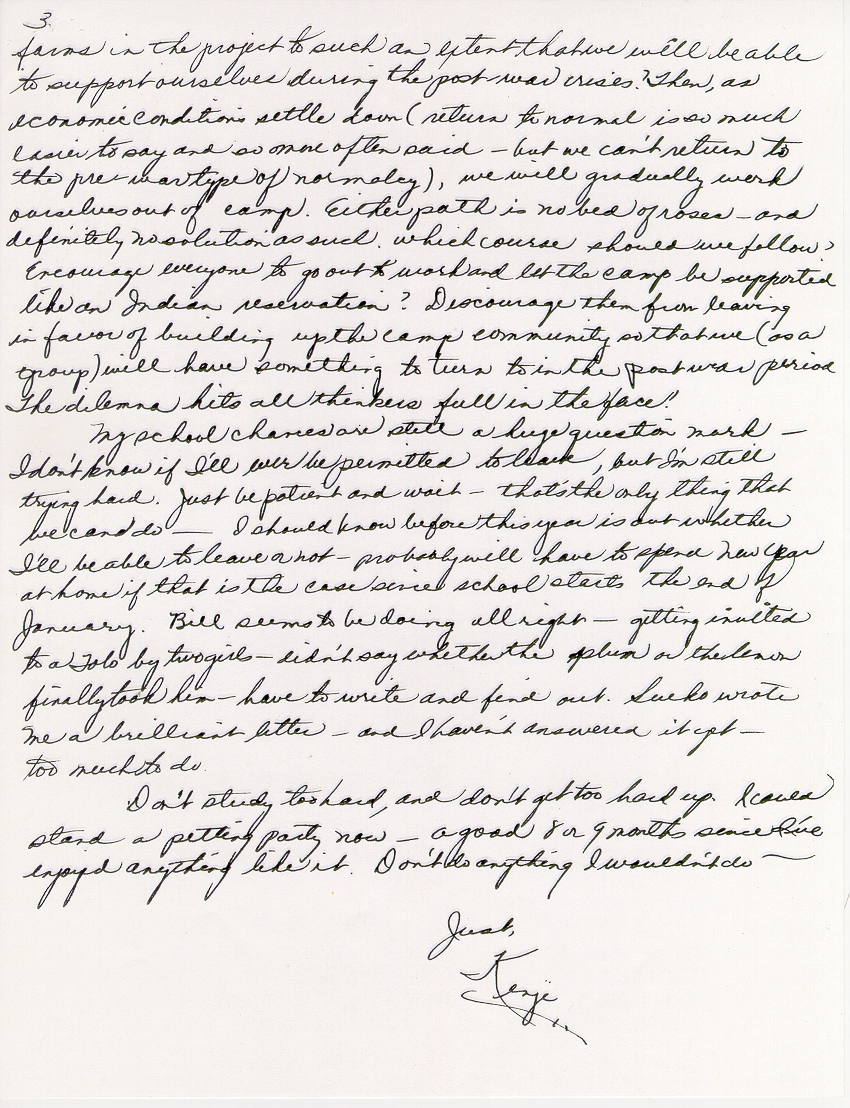 3.
farms in the project to such an extent that we will be able
to support ourselves during the post-war crises? Then, as
economic conditions settle down (return to normal is so much
easier to say and so more often said – but we can't return to
the pre-war type of normalcy), we will gradually work
ourselves out of camp. Either path is no bed of roses – and
definitely no solution as such. Which course should we follow?
Encourage everyone to go out to work and let the camp be supported
like an Indian reservation? Discourage them from leaving
in favor of building up the camp community so that we (as a
group) will have something to turn to in the post war period
The dilemna hits all thinkers full in the face!
My school chances are still a huge question mark –
I don't know if I'll ever be permitted to leave, but I'm still
trying hard. Just be patient and wait – that's the only thing that
we can do — I should know before this year is out whether
I'll be able to leave or not – probably will have to spend New Year
at home if that is the case since school starts the end of
January. Bill seems to be doing all right – getting invited
to a Tolo by two girls – didn't say whether the plum or the lemon
finally took him – have to write and find out. Sueko wrote
me a brilliant letter – and I haven't answered it yet –
too much to do.
Don't study too hard, and don't get too hard up. I could
stand a petting party now – a good 8 or 9 months since I've
enjoyed anything like it. Don't do anything I wouldn't do —
Just,
Kenji